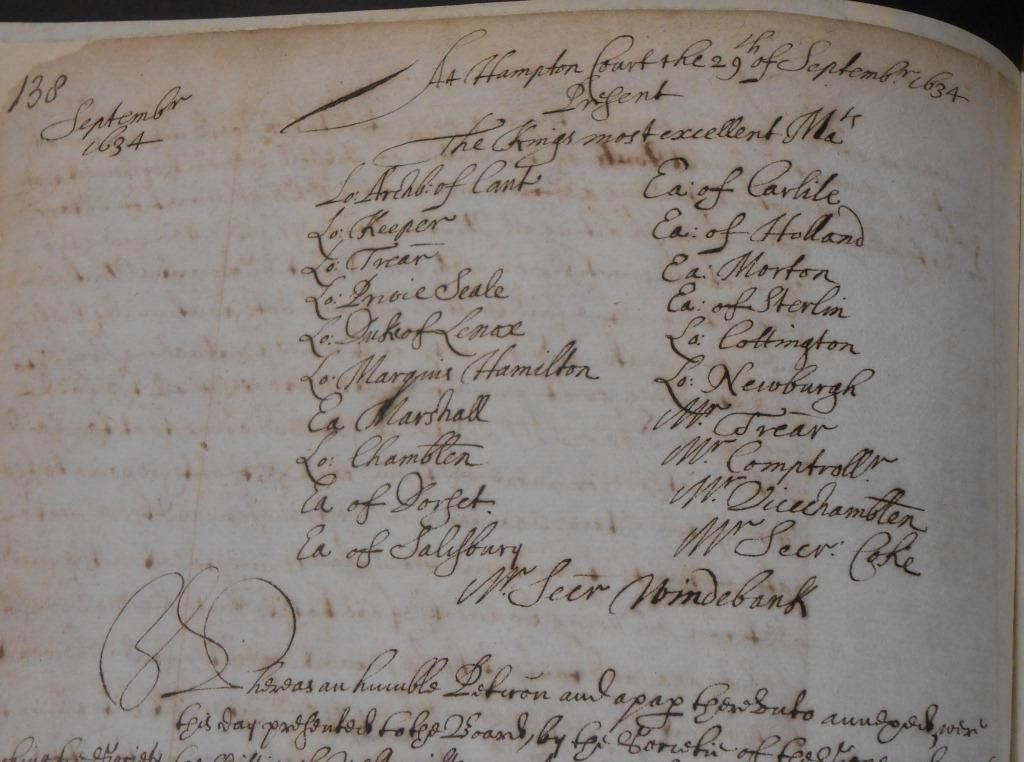 138
Septembr
1634
At Hampton Court the 29th of Septembr: 1634
Present
The Kings most excellent Matie
Lo: Archb: of Cant
Lo: Keeper
Lo: Trear
Lo: Privie Seale
Lo: Duke of Lenox
Lo: Marquis Hamilton
Ea Marshall
Lo: Chamblen
Ea of Dorset.
Ea of Salisbury
Ea: of Carlile
Ea: of Holland
Ea: Morton
Ea: of Sterlin
Lo: Cottington
Lo: Newburgh
Mr. Trear
Mr. Comptrollr
Mr. Vicechamblen
Mr Secr: Coke
Mr Secr Windebank
Whereas an humble Peticon and a pap thereunto annexed, were
this day presented to the Board, by the Societie of the